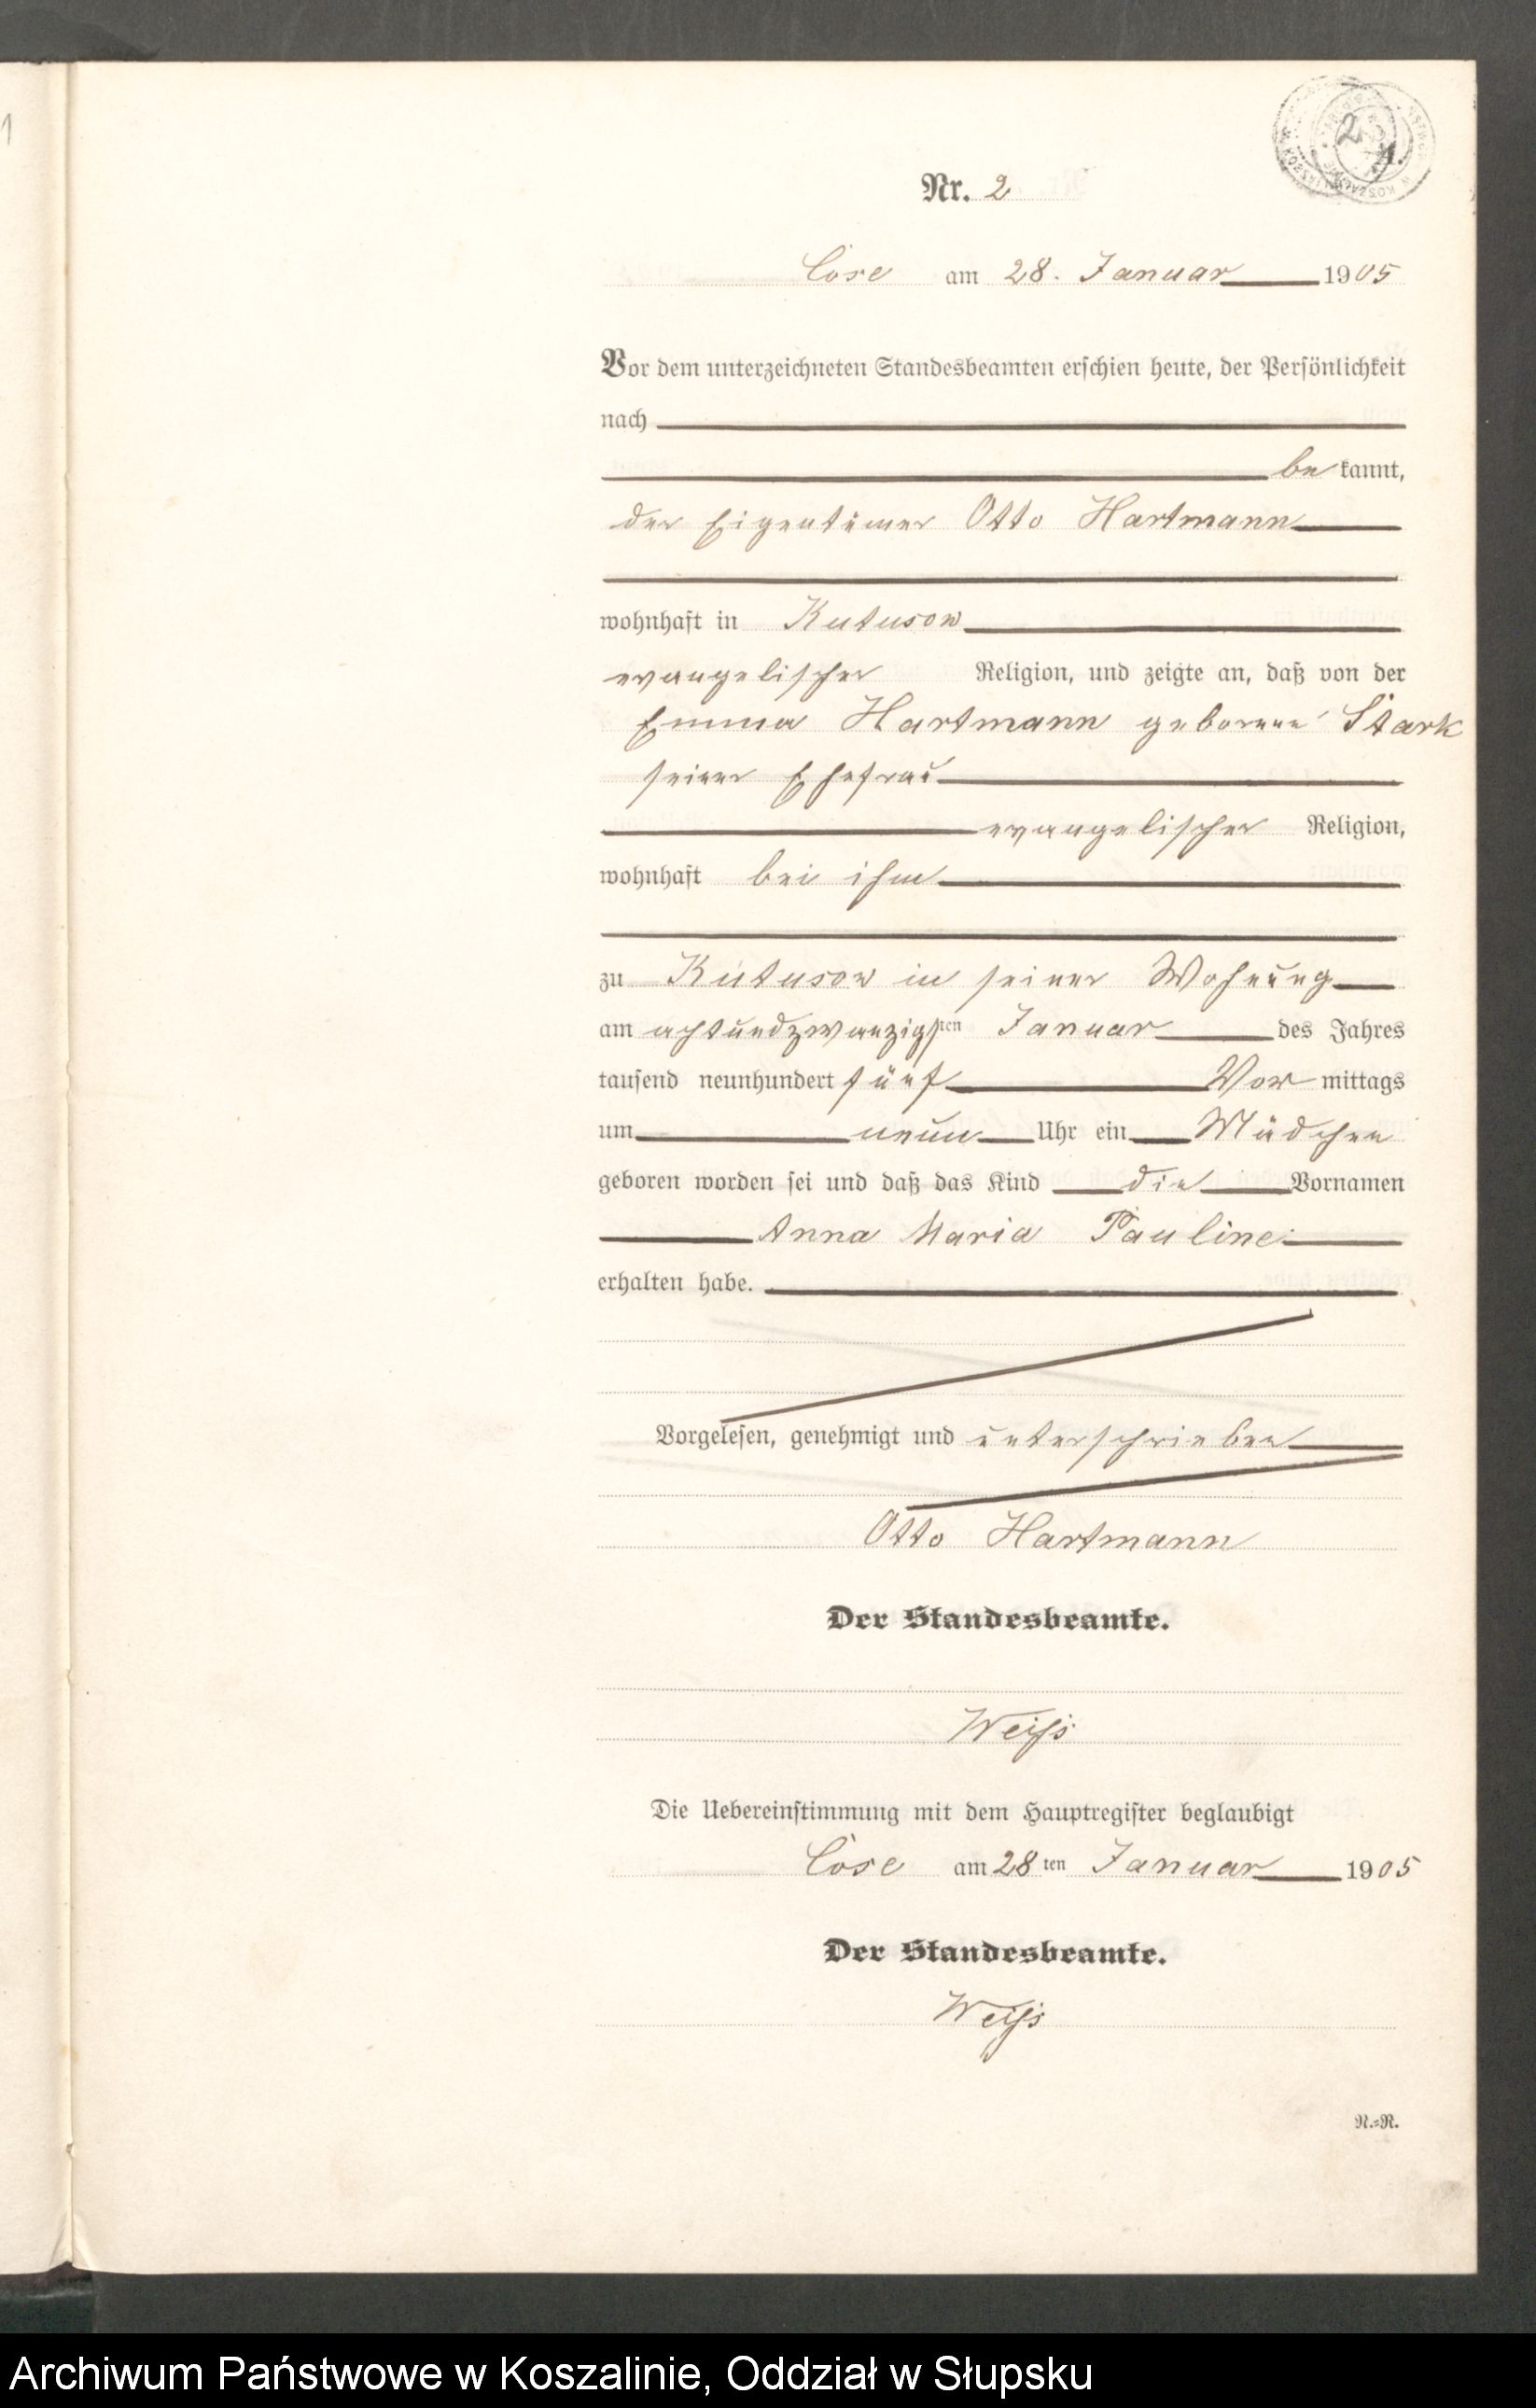 1
2
4.
Nr. 2
Cose am 28. Januar 1905
Vor dem unterzeichneten Standesbeamten erschien heute, der Persönlichkeit
nach
be kannt,
der Eigentümer Otto Hartmann
wohnhaft in Kutusow
evangelischer Religion, und zeigte an, daß von der
Emma Hartmann geborene Stark
seiner Ehefrau
evangelischer Religion,
wohnhaft bei ihm
zu Kutusow in seiner Wohnung
am achtundzwanzigsten Januar des Jahres
tausend neunhundert fünf Vor mittags
um neun Uhr ein Mädchen
geboren worden sei und daß das Kind die Vornamen
Anna Maria Pauline
erhalten habe.
Vorgelesen, genehmigt und unterschrieben
Otto Hartmann
Der Standesbeamte.
Weiß
Die Uebereinstimmung mit dem Hauptregister beglaubigt
Cose am 28 ten Januar 1905
Der Standesbeamte.
Weiß
N.=R.
Archiwum Państwowe w Koszalinie, Oddział w Słupsku